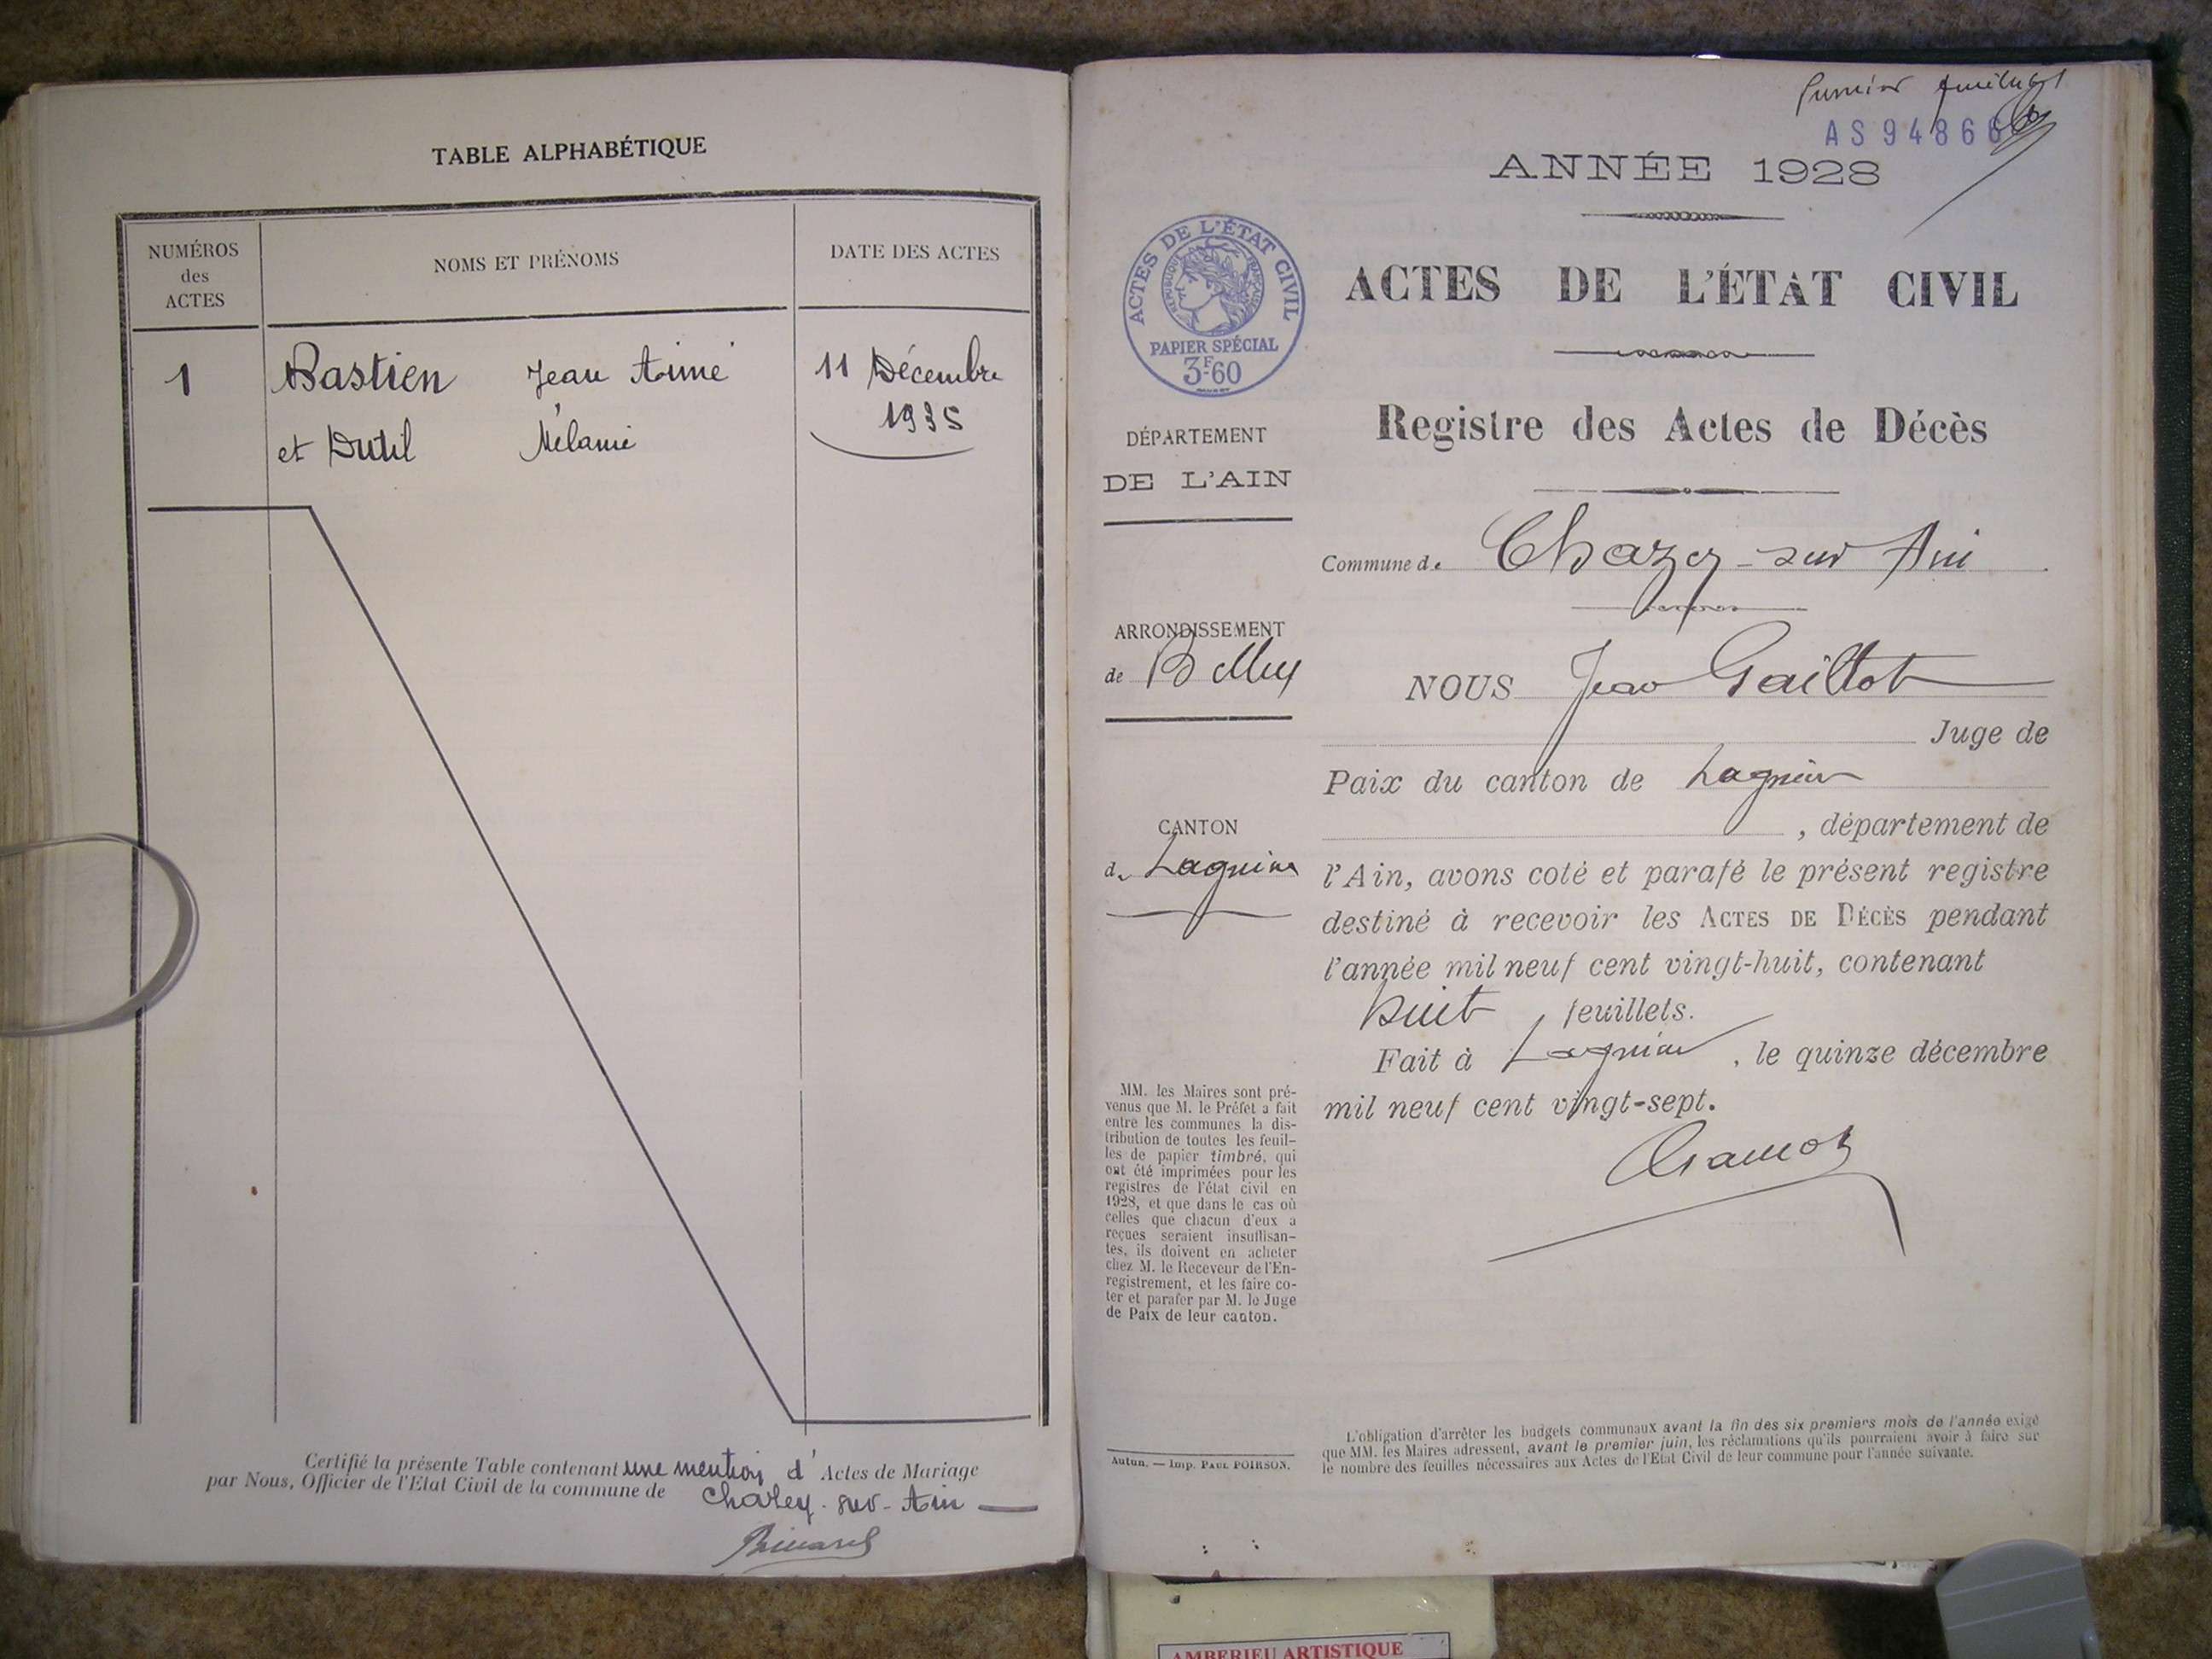 TABLE ALPHABÉTIQUE
NUMÉROS
des
ACTES
NOMS ET PRÉNOMS
DATE DES ACTES
1 Bastien Jean Aimé 11 Décembre
1935
et Dutil Mélanie
Certifié la présente Table contenant une mention d' Actes de Mariage
par Nous, Officier de l'Etat Civil de la commune de Chazey-sur-Ain
AS 94866
ANNÉE 1928
ACTES DE L'ÉTAT CIVIL
RÉPUBLIQUE FRANÇAISE
PAPIER SPÉCIAL
3F60
ACTES DE L'ÉTAT CIVIL
Registre des Actes de Décès
DÉPARTEMENT
DE L'AIN
Commune de Chazey-sur Ain
ARRONDISSEMENT
de Belley
NOUS Jean Gaillot
Juge de
Paix du canton de Lagnieu
, département de
CANTON
de Lagnieu
l'Ain, avons coté et parafé le présent registre
destiné à recevoir les ACTES DE DÉCÈS pendant
l'année mil neuf cent vingt-huit, contenant
huit feuillets.
Fait à Lagnieu, le quinze décembre
mil neuf cent vingt-sept.
MM. les Maires sont pré-
venus que M. le Préfet a fait
entre les communes la dis-
tribution de toutes les feuil-
les de papier timbré, qui
ont été imprimées pour les
registres de l'état civil en
1928, et que dans le cas où
celles que chacun d'eux a
reçues seraient insuffisan-
tes, ils doivent en acheter
chez M. le Receveur de l'En-
registrement, et les faire co-
ter et parafer par M. le Juge
de Paix de leur canton.
Autun. — Imp. PAUL POIRSON.
L'obligation d'arrêter les budgets communaux avant la fin des six premiers mois de l'année exige
que MM. les Maires adressent, avant le premier juin, les réclamations qu'ils pourraient avoir à faire sur
le nombre des feuilles nécessaires aux Actes de l'Etat Civil de leur commune pour l'année suivante.
AMBERIEU ARTISTIQUE